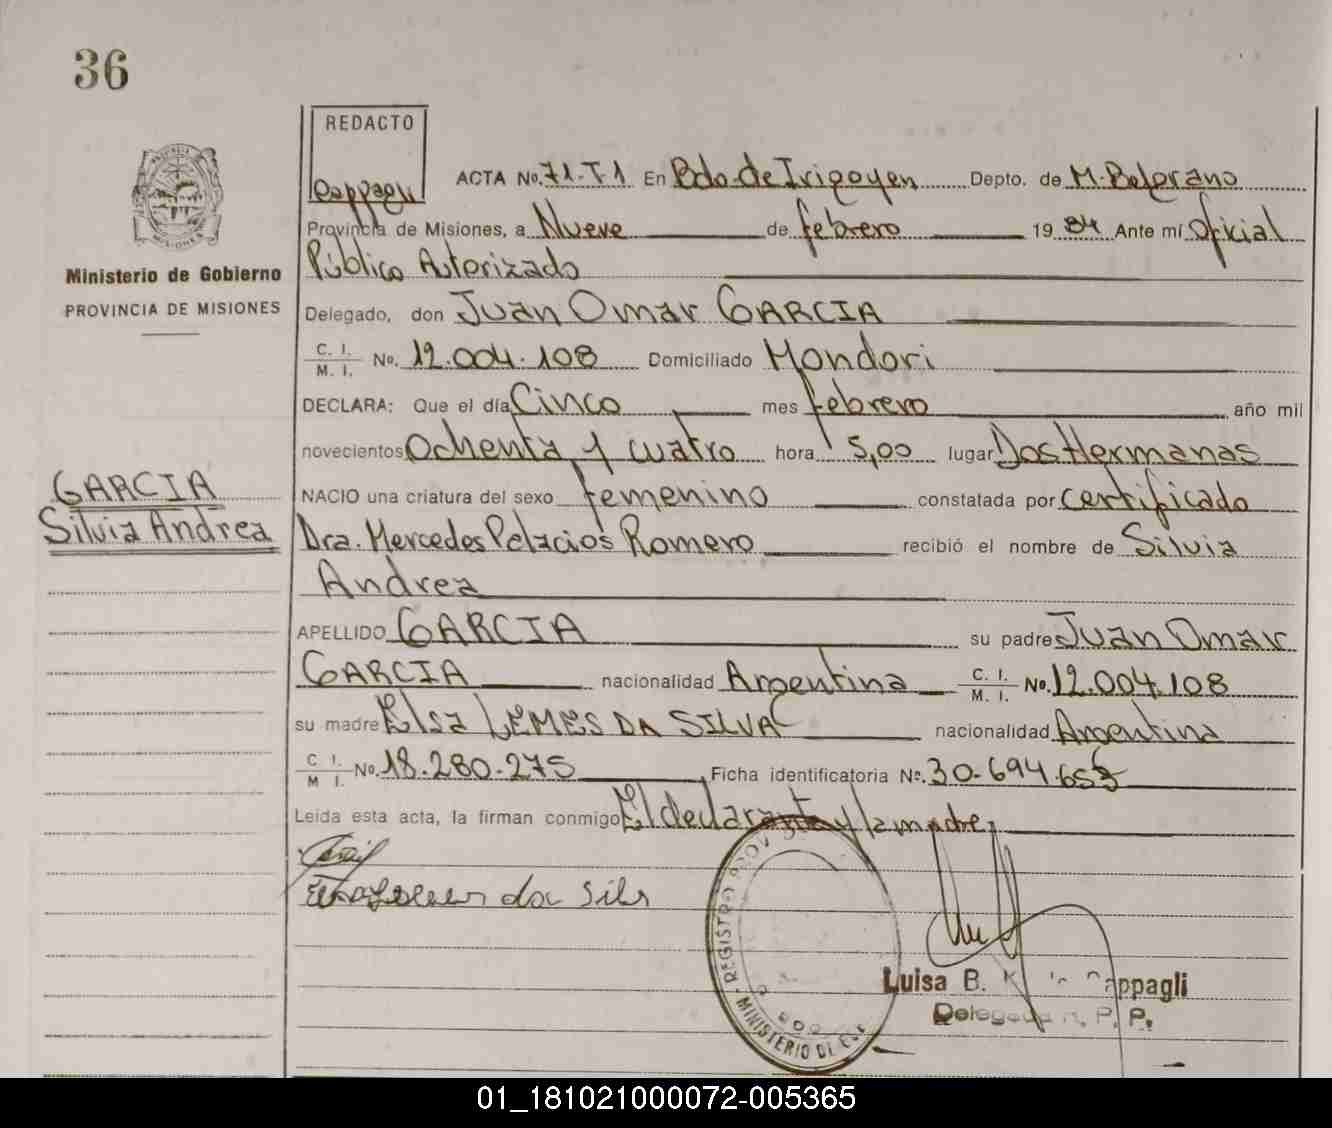 36
REDACTO
Cappagli
ACTA No. 71-T1 En Bdo. de Irigoyen Depto. de M. Belgrano
Provincia de Misiones, a Nueve de febrero 1984 Ante mí Oficial
Público Autorizado
Ministerio de Gobierno
PROVINCIA DE MISIONES
Delegado, don Juan Omar GARCIA
C. I.
M. I. No. 12.004.108 Domiciliado Mondori
DECLARA: Que el día Cinco mes febrero año mil
novecientos Ochenta y cuatro hora 5,00 lugar Dos Hermanas
GARCIA
Silvia Andrea
NACIO una criatura del sexo femenino constatada por certificado
Dra. Mercedes Palacios Romero recibió el nombre de Silvia
Andrea
APELLIDO GARCIA su padre Juan Omar
GARCIA nacionalidad Argentina C. I.
M. I. No. 12.004.108
su madre Elsa LEMES DA SILVA nacionalidad Argentina
C I.
M I. No. 18.280.275 Ficha identificatoria No. 30.694.653
Leída esta acta, la firman conmigo El declarante y la madre
da Silv
REGISTRO PROV
MINISTERIO DE
Luisa B. Cappagli
Delegada R. P. P.
01_181021000072-005365